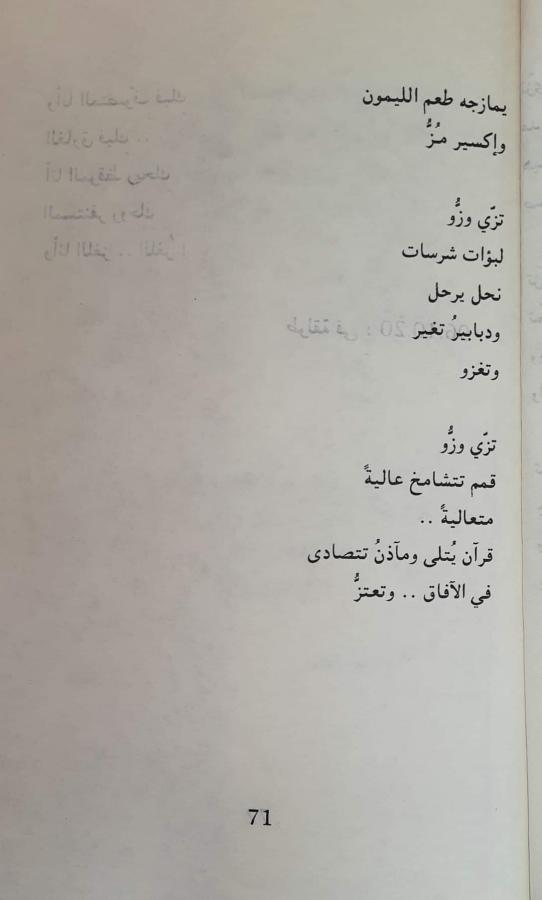 يمازجه طعم الليمون
وإكسير مُزُّ
تزّي وزُّو
لبؤات شرسات
نحل يرحل
ودبابيرُ تغير
وتغزو
تزّي وزُّو
قمم تتشامخ عاليةً
متعاليةً ..
قرآن يُتلى ومآذنُ تتصادى
في الآفاق .. وتعتزُّ
71